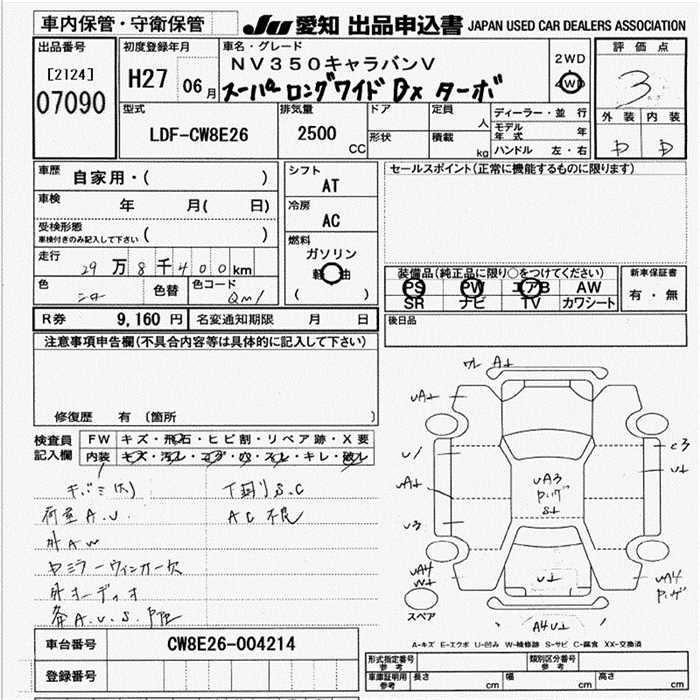 車内保管・守衛保管 JU 愛知 出品申込書 JAPAN USED CAR DEALERS ASSOCIATION
出品番号 [2124] 07090
初度登録年月 H27 06月
車名・グレード NV350キャラバンV
スーパーロングワイド DX ターボ
2WD 4WD
評価点 3
外装 内装
D D
型式 LDF-CW8E26
排気量 2500 CC
ドア 形状
定員 人 積載 kg
ディーラー・並行
モデル年式 年
ハンドル 左・右
車歴 自家用・( )
車検 年 月( 日)
受検形態 車検付きのみ記入して下さい ( )
走行 29万8千400km
色 シロー 色替 色コード QM1
シフト AT
冷房 AC
燃料 ガソリン
軽油
( )
セールスポイント(正常に機能するものに限ります)
装備品(純正品に限り○をつけてください)
PS PW エアB AW
SR ナビ TV カワシート
新車保証書 有・無
R券 9,160円 名変通知期限 月 日
後日品
注意事項申告欄(不具合内容等は具体的に記入して下さい)
修復歴 有 〔箇所 〕
検査員記入欄
FW キズ・飛石・ヒビ割・リペア跡・X要
内装 キズ・汚レ・コゲ・穴・スレ・キレ・破レ
下回りS.C
荷室A.U.
AC不良
外AW
外オーディオ
A.U.S.
車台番号 CW8E26-004214
登録番号
A↓
UA↓
U1
UA↓
U3
UA4
W↓
UA3
S↓
U↓
C3
U↓
UA4
A4U↓
スペア
A-キズ E-エクボ U-凹み W-補修跡 S-サビ C-腐食 XX-交換済
形式指定番号 参考 類別区分番号 参考
車庫証明用 参考 長さ cm 幅 cm 高さ cm